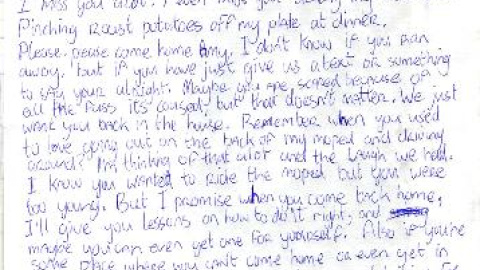 I miss you alot. I even miss you
Pinching roast potatoes off my plate at dinner.
Please please come home Amy, I don't know if you ran
away, but if you have just give us a text or something
to say your alright. Maybe you are scared because of
all the fuss its caused, but that doesn't matter. We just
want you back in the house. Remember when you used
to love going out on the back of my moped and driving
around? I'm thinking of that alot and the laugh we had.
I know you wanted to ride the moped but you were
too young. But I promise when you come back home,
I'll give you lessons on how to do it right, and
maybe you can even get one for yourself. Also if you're
some place where you can't come home or even get in